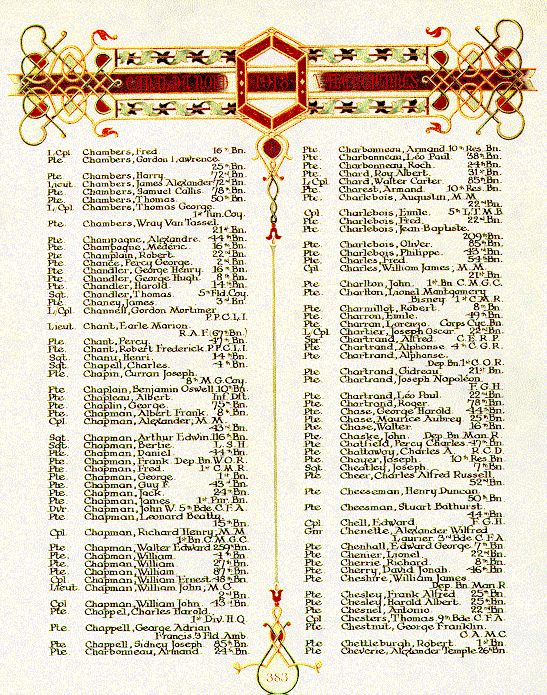 1918
L/Cpl Chambers, Fred 16th Bn.
Pte. Chambers, Gordon Lawrence
25th Bn.
Pte. Chambers, Harry 72nd Bn.
Lieut. Chambers, James Alexander 72nd Bn.
Pte. Chambers, Samuel Callis 78th Bn.
Pte. Chambers, Thomas 50th Bn.
L/Cpl Chambers, Thomas George
1st Tun. Coy.
Pte. Chambers, Wray Van Tassel
21st Bn.
Pte. Champagne, Alexandre 44th Bn.
Pte. Champagne, Médéric 16th Bn.
Pte. Champlain, Robert 22nd Bn.
Pte. Chance, Percy George 2nd Bn.
Pte. Chandler, George Henry 16th Bn.
Pte. Chandler, George Hugh 8th Bn.
Pte. Chandler, Harold 14th Bn.
Sgt. Chandler, Thomas 5th Fld. Coy.
Pte. Chaney, James 3rd Bn.
L/Cpl Channell, Gordon Mortimer
P.P.C.L.I.
Lieut. Chant, Earle Marion
R.A.F. (67th Bn.)
Pte. Chant, Percy 47th Bn.
Pte. Chant, Robert Frederick P.P.C.L.I.
Sgt. Chanu, Henri 14th Bn.
Sgt. Chapell, Charles 4th Bn.
Pte. Chapin, Curran Joseph
8th M.G. Coy.
Pte. Chaplain, Benjamin Oswell 10th Bn.
Pte. Chapleau, Albert Inf. Dft.
Pte. Chaplin, George 75th Bn.
Pte. Chapman, Albert Frank 8th Bn.
Cpl. Chapman, Alexander, M.M.
43rd Bn.
Sgt. Chapman, Arthur Edwin 116th Bn.
Sgt. Chapman, Bertie L.S.H.
Pte. Chapman, Daniel 44th Bn.
Pte. Chapman, Frank Dep. Bn. W.O.R.
Pte. Chapman, Fred 1st C.M.R.
Pte. Chapman, George 1st Bn.
Pte. Chapman, Guy F. 43rd Bn.
Pte. Chapman, Jack 24th Bn.
Pte. Chapman, James 1st Pnr. Bn.
Dvr. Chapman, John W. 5th Bde. C.F.A.
Pte. Chapman, Leonard Beatty
15th Bn.
Cpl. Chapman, Richard Henry, M.M.
1st Bn. C.M.G.C.
Pte. Chapman, Walter Edward 259th Bn.
Pte. Chapman, William 4th Bn.
Pte. Chapman, William 27th Bn.
Pte. Chapman, William 87th Bn.
Cpl. Chapman, William Ernest 48th Bn.
Lieut. Chapman, William John, M.C.
2nd Bn.
Cpl. Chapman, William John 43rd Bn.
Pte. Chappel, Charles Harold
1st Div. H.Q.
Pte. Chappell, George Adrian
Francis 3 Fld. Amb.
Pte. Chappell, Sidney Joseph 85th Bn.
Pte. Charbonneau, Armand 24th Bn.
Pte. Charbonneau, Armand 10th Res. Bn.
Pte. Charbonneau, Léo Paul 38th Bn.
Pte. Charbonneau, Roch 24th Bn.
Pte. Chard, Roy Albert 31st Bn.
L/Cpl Chard, Walter Carter 85th Bn.
Pte. Charest, Armand 10th Res. Bn.
Pte. Charlebois, Augustin, M.M.
22nd Bn.
Cpl. Charlebois, Emile 5th L.T.M.B.
Pte. Charlebois, Fred 22nd Bn.
Pte. Charlebois, Jean Baptiste
209th Bn.
Pte. Charlebois, Oliver 85th Bn.
Pte. Charlebois, Philippe 43rd Bn.
Pte. Charles, Fred 54th Bn.
Cpl. Charles, William James, M.M.
21st Bn.
Pte. Charlton, John 1st Bn. C.M.G.C.
Pte. Charlton, Lionel Montgomery
Bisney 1st C.M.R.
Pte. Charmillot, Robert 8th Bn.
Pte. Charron, Emile 49th Bn.
Pte. Charron, Lorenzo Corps Cyc. Bn.
L/Cpl Chartier, Joseph Oscar 22nd Bn.
Spr. Chartrand, Alfred C.E.R.P.
Pte. Chartrand, Alphonse 4th C.G.R.
Pte. Chartrand, Alphonse
Dep. Bn. 1st C.O.R.
Pte. Chartrand, Gidreau 21st Bn.
Pte. Chartrand, Joseph Napoleon
F.G.H.
Pte. Chartrand, Léo Paul 22nd Bn.
Pte. Chartrand, Roger 78th Bn.
Pte. Chase, George Harold 44th Bn.
Pte. Chase, Maurice Aubrey 25th Bn.
Pte. Chase, Walter 16th Bn.
Pte. Chaske, John Dep. Bn. Man. R.
Pte. Chatfield, Percy Charles 47th Bn.
Pte. Chattaway, Charles A. R.C.D.
Pte. Chayer, Joseph 10th Res. Bn.
Sgt. Cheatley, Joseph 7th Bn.
Pte. Cheer, Charles Alfred Russell
52nd Bn.
Pte. Cheeseman, Henry Duncan
50th Bn.
Pte. Cheesman, Stuart Bathurst
44th Bn.
Cpl. Chell, Edward F.G.H.
Gnr. Chenette, Alexander Wilfred
Laurier 3rd Bde. C.F.A.
Pte. Chenhall, Edward George 7th Bn.
Pte. Chenier, Lionel 22nd Bn.
Pte. Cherrie, Richard 8th Bn.
Pte. Cherry, David Jonah 46th Bn.
Pte. Cheshire, William James
Dep. Bn. Man. R.
Pte. Chesley, Frank Alfred 25th Bn.
Pte. Chesley, Harold Albert 25th Bn.
Pte. Chesnel, Antonio 22nd Bn.
Cpl. Chesters, Thomas 9th Bde. C.F.A.
Pte. Chestnut, George Franklin
C.A.M.C.
Pte. Chettleburgh, Robert 1st Bn.
Pte. Cheverie, Alexander Temple 26th Bn.
383